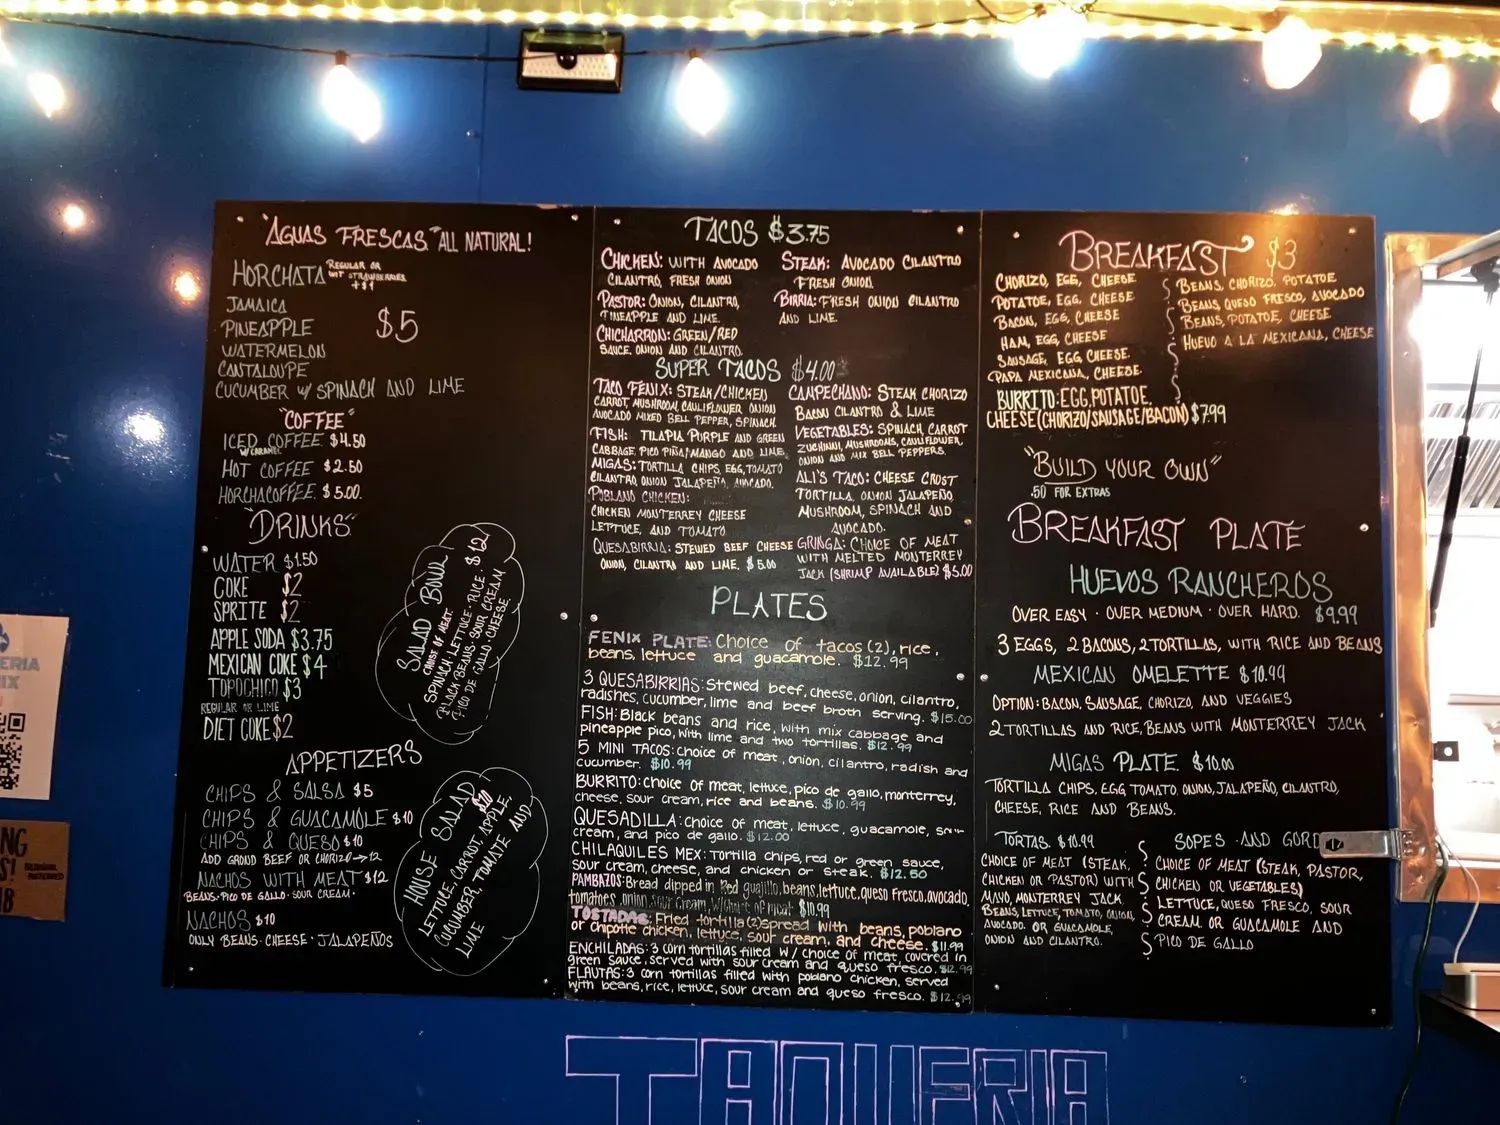 "AGUAS FRESCAS" ALL NATURAL!
HORCHATA REGULAR OR
W/ STRAWBERRIES
+$1
JAMAICA
PINEAPPLE $5
WATERMELON
CANTALOUPE
CUCUMBER W/ SPINACH AND LIME
"COFFEE"
ICED COFFEE $4.50
W/CARAMEL
HOT COFFEE $2.50
HORCHACOFFEE $5.00
"DRINKS"
WATER $1.50
COKE $2
SPRITE $2
APPLE SODA $3.75
MEXICAN COKE $4
TOPOCHICO $3
REGULAR OR LIME
DIET COKE $2
SALAD BOWL $12
CHOICE OF MEAT.
SPINACH, LETTUCE, RICE
BLACK BEANS, SOUR CREAM
PICO DE GALLO CHEESE
APPETIZERS
CHIPS & SALSA $5
CHIPS & GUACAMOLE $10
CHIPS & QUESO $10
ADD GROND BEEF OR CHORIZO→12
NACHOS WITH MEAT $12
BEANS·PICO DE GALLO·SOUR CREAM·
NACHOS $10
ONLY BEANS·CHEESE·JALAPEÑOS
HOUSE SALAD $10
LETTUCE, CARROT, APPLE,
CUCUMBER, TOMATE AND
LIME
TACOS $3.75
CHICKEN: WITH AVOCADO
CILANTRO, FRESH ONION
PASTOR: ONION, CILANTRO,
PINEAPPLE AND LIME.
CHICHARRON: GREEN/RED
SAUCE, ONION AND CILANTRO.
STEAK: AVOCADO CILANTRO
FRESH ONION
BIRRIA: FRESH ONION CILANTRO
AND LIME.
SUPER TACOS $4.00
TACO FENIX: STEAK/CHICKEN
CARROT, MUSHROOM, CAULIFLOWER ONION
AVOCADO MIXED BELL PEPPER, SPINACH.
FISH: TILAPIA PURPLE AND GREEN
CABBAGE, PICO PIÑA/MANGO AND LIME.
MIGAS: TORTILLA CHIPS, EGG, TOMATO
CILANTRO ONION JALAPEÑO, AVOCADO.
POBLANO CHICKEN:
CHICKEN MONTERREY CHEESE
LETTUCE, AND TOMATO
QUESABIRRIA: STEWED BEEF CHEESE
ONION, CILANTRO AND LIME. $5.00
CAMPECHANO: STEAK CHORIZO
BACON CILANTRO & LIME
VEGETABLES: SPINACH, CARROT
ZUCHINNI, MUSHROOMS, CAULIFLOWER,
ONION AND MIX BELL PEPPERS.
ALI'S TACO: CHEESE CRUST
TORTILLA ONION JALAPEÑO
MUSHROOM, SPINACH AND
AVOCADO.
GRINGA: CHOICE OF MEAT
WITH MELTED MONTERREY
JACK (SHRIMP AVAILABLE) $5.00
PLATES
FENIX PLATE: Choice of tacos(2), rice,
beans, lettuce and guacamole. $12.99
3 QUESABIRRIAS: Stewed beef, cheese, onion, cilantro,
radishes, cucumber, lime and beef broth serving. $15.00
FISH: Black beans and rice, with mix cabbage and
pineapple pico, with lime and two tortillas. $12.99
5 MINI TACOS: choice of meat, onion, cilantro, radish and
cucumber. $10.99
BURRITO: choice of meat, lettuce, pico de gallo, monterrey,
cheese, sour cream, rice and beans. $10.99
QUESADILLA: choice of meat, lettuce, guacamole, sour
cream, and pico de gallo. $12.00
CHILAQUILES MEX: Tortilla chips, red or green sauce,
sour cream, cheese, and chicken or steak. $12.50
PAMBAZOS: Bread dipped in Red guajillo, beans, lettuce, queso fresco, avocado,
tomatoes, onion, sour cream, w/choice of meat $10.99
TOSTADAS: Fried tortilla(2) spread with beans, poblano
or chipotle chicken, lettuce, sour cream, and cheese. $11.99
ENCHILADAS: 3 corn tortillas filled w/ choice of meat, covered in
green sauce, served with sour cream and queso fresco. $12.99
FLAUTAS: 3 corn tortillas filled with poblano chicken, served
with beans, rice, lettuce, sour cream and queso fresco. $12.99
BREAKFAST $3
CHORIZO, EGG, CHEESE.
POTATOE, EGG, CHEESE
BACON, EGG, CHEESE
HAM, EGG, CHEESE
SAUSAGE, EGG CHEESE.
PAPA MEXICANA, CHEESE.
BEANS, CHORIZO, POTATOE
BEANS, QUESO FRESCO, AVOCADO
BEANS, POTATOE, CHEESE
HUEVO A LA MEXICANA, CHEESE
BURRITO: EGG, POTATOE,
CHEESE(CHORIZO/SAUSAGE/BACON) $7.99
"BUILD YOUR OWN"
.50 FOR EXTRAS
BREAKFAST PLATE
HUEVOS RANCHEROS
OVER EASY · OVER MEDIUM · OVER HARD. $9.99
3 EGGS, 2 BACONS, 2 TORTILLAS, WITH RICE AND BEANS
MEXICAN OMELETTE $10.99
OPTION: BACON, SAUSAGE, CHORIZO, AND VEGGIES
2 TORTILLAS AND RICE, BEANS WITH MONTERREY JACK
MIGAS PLATE $10.00
TORTILLA CHIPS, EGG, TOMATO, ONION, JALAPEÑO, CILANTRO,
CHEESE, RICE AND BEANS.
TORTAS $10.99
CHOICE OF MEAT (STEAK,
CHICKEN OR PASTOR) WITH
MAYO, MONTERREY JACK
BEANS, LETTUCE, TOMATO, ONION,
AVOCADO OR GUACAMOLE,
ONION AND CILANTRO.
SOPES AND GORD
CHOICE OF MEAT (STEAK, PASTOR,
CHICKEN OR VEGETABLES)
LETTUCE, QUESO FRESCO, SOUR
CREAM OR GUACAMOLE AND
PICO DE GALLO
TAQUERIA